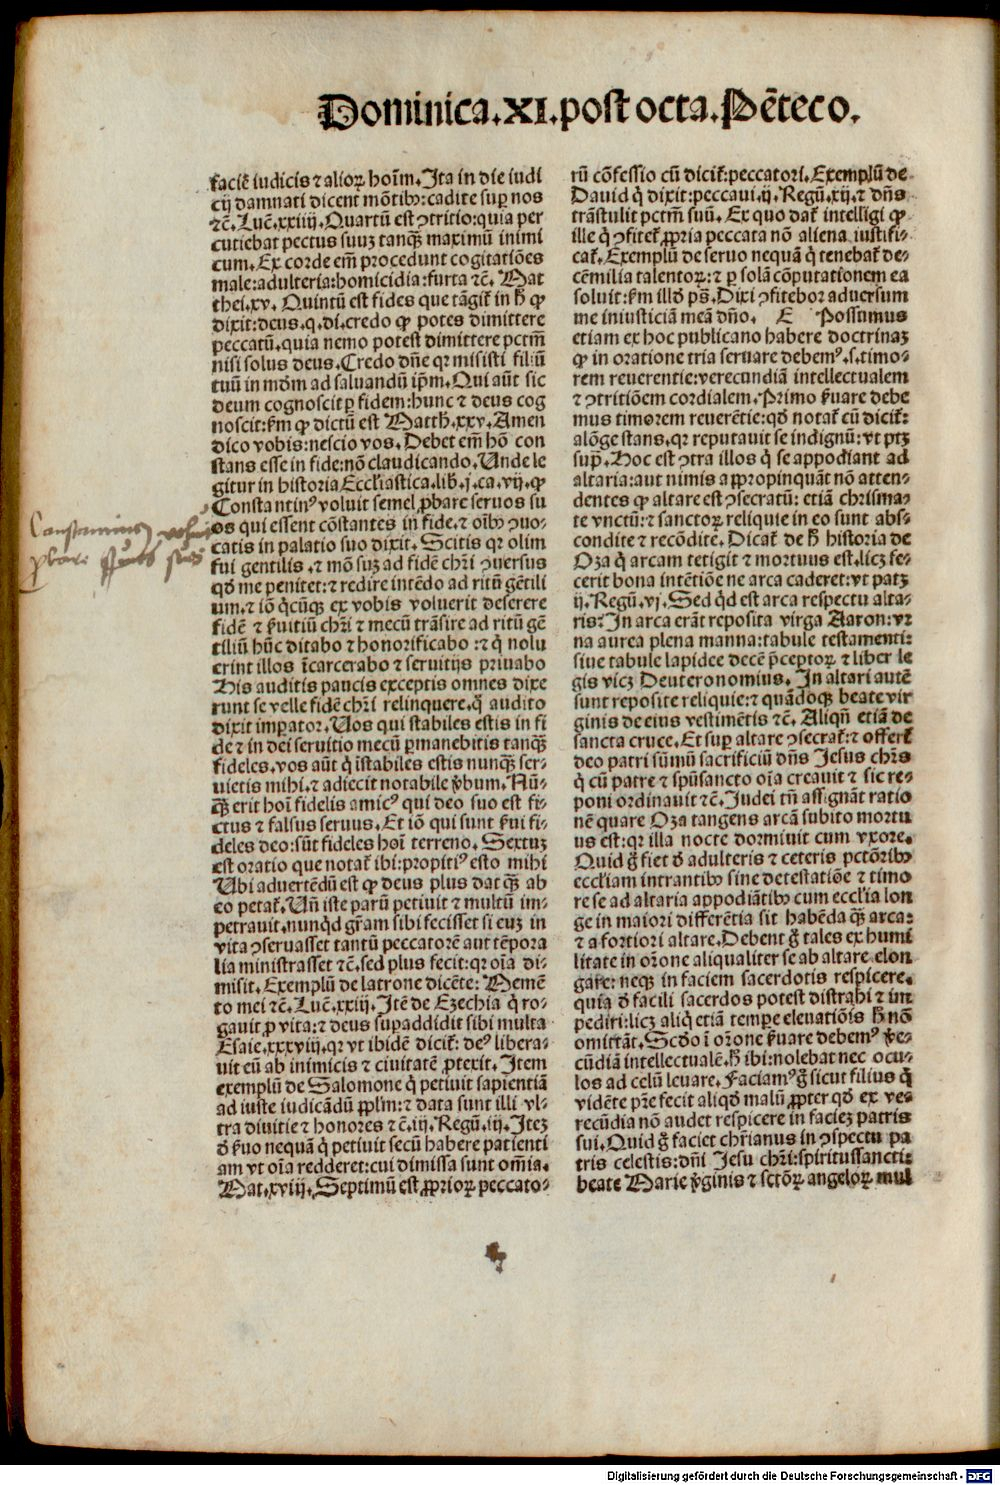 Dominica.XI.post octa.Pēteco.
faciē iudicis ⁊ alioꝝ hoīm. Ita in die iudi
cij damnati dicent mōtibꝰ: cadite suꝑ nos
⁊cē. Lucē.xxiiij. Quartū est ꝯtritio: quia per
cutiebat pectus suuꝫ tanqꝫ maximū inimi
cum. Ex corde em̄ procedunt cogitatiōes
male: adulteria: homicidia: furta ⁊cē. Mat
thei.xv. Quintū est fides que tāgiť in h̄ ꝙ
dixit: deus. q. di. credo ꝙ potes dimittere
peccatū. quia nemo potest dimittere pctm̄
nisi solus deus. Credo dn̄e qꝛ misisti filiū
tuū in mōm ad saluandū ip̄m. Qui aūt sic
deum cognoscit ꝑ fidem: hunc ⁊ deus cog
noscit: ẜm ꝙ dictū est Matth̄.xxv. Amen
dico vobis: nescio vos. Debet em̄ hō con
stans esse in fide: nō claudicando. Unde le
gitur in historia Ecclīastica. lib̄.j.ca.vij. ꝙ
Constantinꝰ voluit semel ꝓbare seruos su
os qui essent cōstantes in fide. ⁊ oībꝰ ꝯuo-
catis in palatio suo dixit. Scitis qꝛ olim
fui gentilis .⁊ mō suꝫ ad fidē chrī ꝯuersus
qd̄ me penitet: ⁊ redire intēdo ad ritū gētili
um. ⁊ iō q̄cūqꝫ ex vobis voluerit deserere
fidē ⁊ ẜuitiū chrī ⁊ mecū trāsire ad ritū gē
tiliū hūc ditabo ⁊ honorificabo :⁊ q̇ nolu
erint illos īcarcerabo ⁊ seruitijs priuabo
His auditis paucis exceptis omnes dixe
runt se velle fidē chrī relinquere. q̇ audito
dixit impator. Uos qui stabiles estis in fi
de ⁊ in dei seruitio mecū ꝑmanebitis tanqꝫ
fideles. vos aūt q̇ īstabiles estis nunqꝫ ser-
uietis mihi. ⁊ adiecit notabile v̄bum. Nū-
qꝫ erit hoī fidelis amicꝰ qui deo suo est fi-
ctus ⁊ falsus seruus. Et iō qui sunt ẜui fi-
deles deo: sūt fideles hoī terreno. Sextuꝫ
est oratio que notať ibi: propitiꝰ esto mihi
Ubi aduertēdū est ꝙ deus plus dat qꝫ ab
eo petať. Un̄ iste parū petiuit ⁊ multū im-
petrauit. nunqd̄ gr̄am sibi fecisset si euꝫ in
vita ꝯseruasset tantū peccatorē aut tēpora
lia ministrasset ⁊cē. sed plus fecit: qꝛ oīa di-
misit. Exemplū de latrone dicēte: Memē
to mei ⁊cē. Lucē.xxiij. Itē de Ezechia q̇ ro-
gauit ꝓ vita: ⁊ deus suꝑaddidit sibi multa
Esaie.xxxviij. qꝛ vt ibidē diciť: deꝰ libera-
uit eū ab inimicis ⁊ ciuitatē ꝓtexit. Item
exemplū de Salomone q̇ petiuit sapientiā
ad iuste iudicādū pplm̄: ⁊ data sunt illi vl-
tra diuitie ⁊ honores ⁊ cē.iij. Regū.iij. Iteꝫ
d̄ ẜuo nequā q̇ petiuit secū habere patienti
am vt oīa redderet: cui dimissa sunt om̄ia.
Mat.xviij. Septimū est ꝓprioꝝ peccato-
rū cōfessio cū diciť: peccatori. Exemplū de
Dauid q̇ dixit: peccaui.ij. Regū.xij. ⁊ dn̄s
trāstulit pctm̄ suū. Ex quo dať intelligi ꝙ
ille q̇ ꝯfiteť ꝓpria peccata nō aliena iustifi-
cať. Exemplū de seruo nequā q̇ tenebať de-
cēmilia talentoꝝ: ⁊ ꝑ solā cōputationem ea
soluit: ẜm illd̄ ps̄. Dixi ꝯfitebor aduersum
me iniusticiā meā dn̄o. E Possumus
etiam ex hoc publicano habere doctrinaꝫ
ꝙ in oratione tria seruare debemꝰ.s. timo-
rem reuerentie: verecundiā intellectualem
⁊ ꝯtritiōem cordialem. Primo ẜuare debe
mus timorem reuerētie: qd̄ notať cū diciť:
alōge stans. qꝛ reputauit se indignū: vt ptꝫ
sup̄. Hoc est ꝯtra illos q̇ se appodiant ad
altaria: aut nimis appropinquāt nō atten-
dentes ꝙ altare est ꝯsecratū: etiā chrisma-
te vnctū: ⁊ sanctoꝝ reliquie in eo sunt abs-
condite ⁊ recōdite. Dicať de h̄ historia de
Oza q̇ arcam tetigit ⁊ mortuus est. licꝫ fe-
cerit bona intētiōe ne arca caderet: vt patꝫ
ij. Regū.vj. Sed qd̄ est arca respectu alta-
ris? In arca erāt reposita virga Aaron: vr
na aurea plena manna: tabule testamenti:
siue tabule lapidee decē p̄ceptoꝝ ⁊ liber le
gis vicꝫ Deuteronomius. In altari autē
sunt reposite reliquie: ⁊ quādoqꝫ beate vir
ginis de eius vestimētis ⁊cē. Aliqn̄ etiā de
sancta cruce. Et suꝑ altare ꝯsecrať: ⁊ offerť
deo patri sūmū sacrificiū dn̄s Jesus chrs̄
q̇ cū patre ⁊ spūsancto oīa creauit ⁊ sic re-
poni ordinauit ⁊cē. Judei tn̄ assignāt ratio
nē quare Oza tangens arcā subito mortu
us est: qꝛ illa nocte dormiuit cum vxore.
Quid g̊ fiet d̄ adulteris ⁊ ceteris pctōribꝰ
eccliam intrantibꝰ sine detestatiōe ⁊ timo
re se ad altaria appodiātibꝰ cum ecclia lon
ge in maiori differētia sit habēda qꝫ arca:
⁊ a fortiori altare. Debent g̊ tales ex humi
litate in orōne aliqualiter se ab altare elon
gare: neqꝫ in faciem sacerdotis respicere.
quia d̄ facili sacerdos potest distrahi ⁊ im
pediri: licꝫ aliq̇ etiā tempe eleuatiōis h̄ nō
omittāt. Scd̄o ī orōne ẜuare debemꝰ ve-
cūdiā intellectualē. h̄ ibi: nolebat nec ocu-
los ad celū leuare. Faciamꝰ g̊ sicut filius q̇
vidēte pr̄e fecit aliqd̄ malū ꝓpter qd̄ ex ve-
recūdia nō audet respicere in facieꝫ patris
sui. Quid g̊ faciet chrīanus in ꝯspectu pa
tris celestis: dn̄i Jesu chrī: spiritussancti:
beate Marie v̄ginis ⁊ sctōꝝ angeloꝝ mul
Constantinus voluit
ꝓbare seruos suos
Digitalisierung gefördert durch die Deutsche Forschungsgemeinschaft - DFG